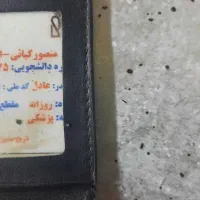 منصور کیانی -
ره دانشجویی: ۲۵
در: عادل کد ملی:
ه: روزانه مقطع
ه: پزشکی